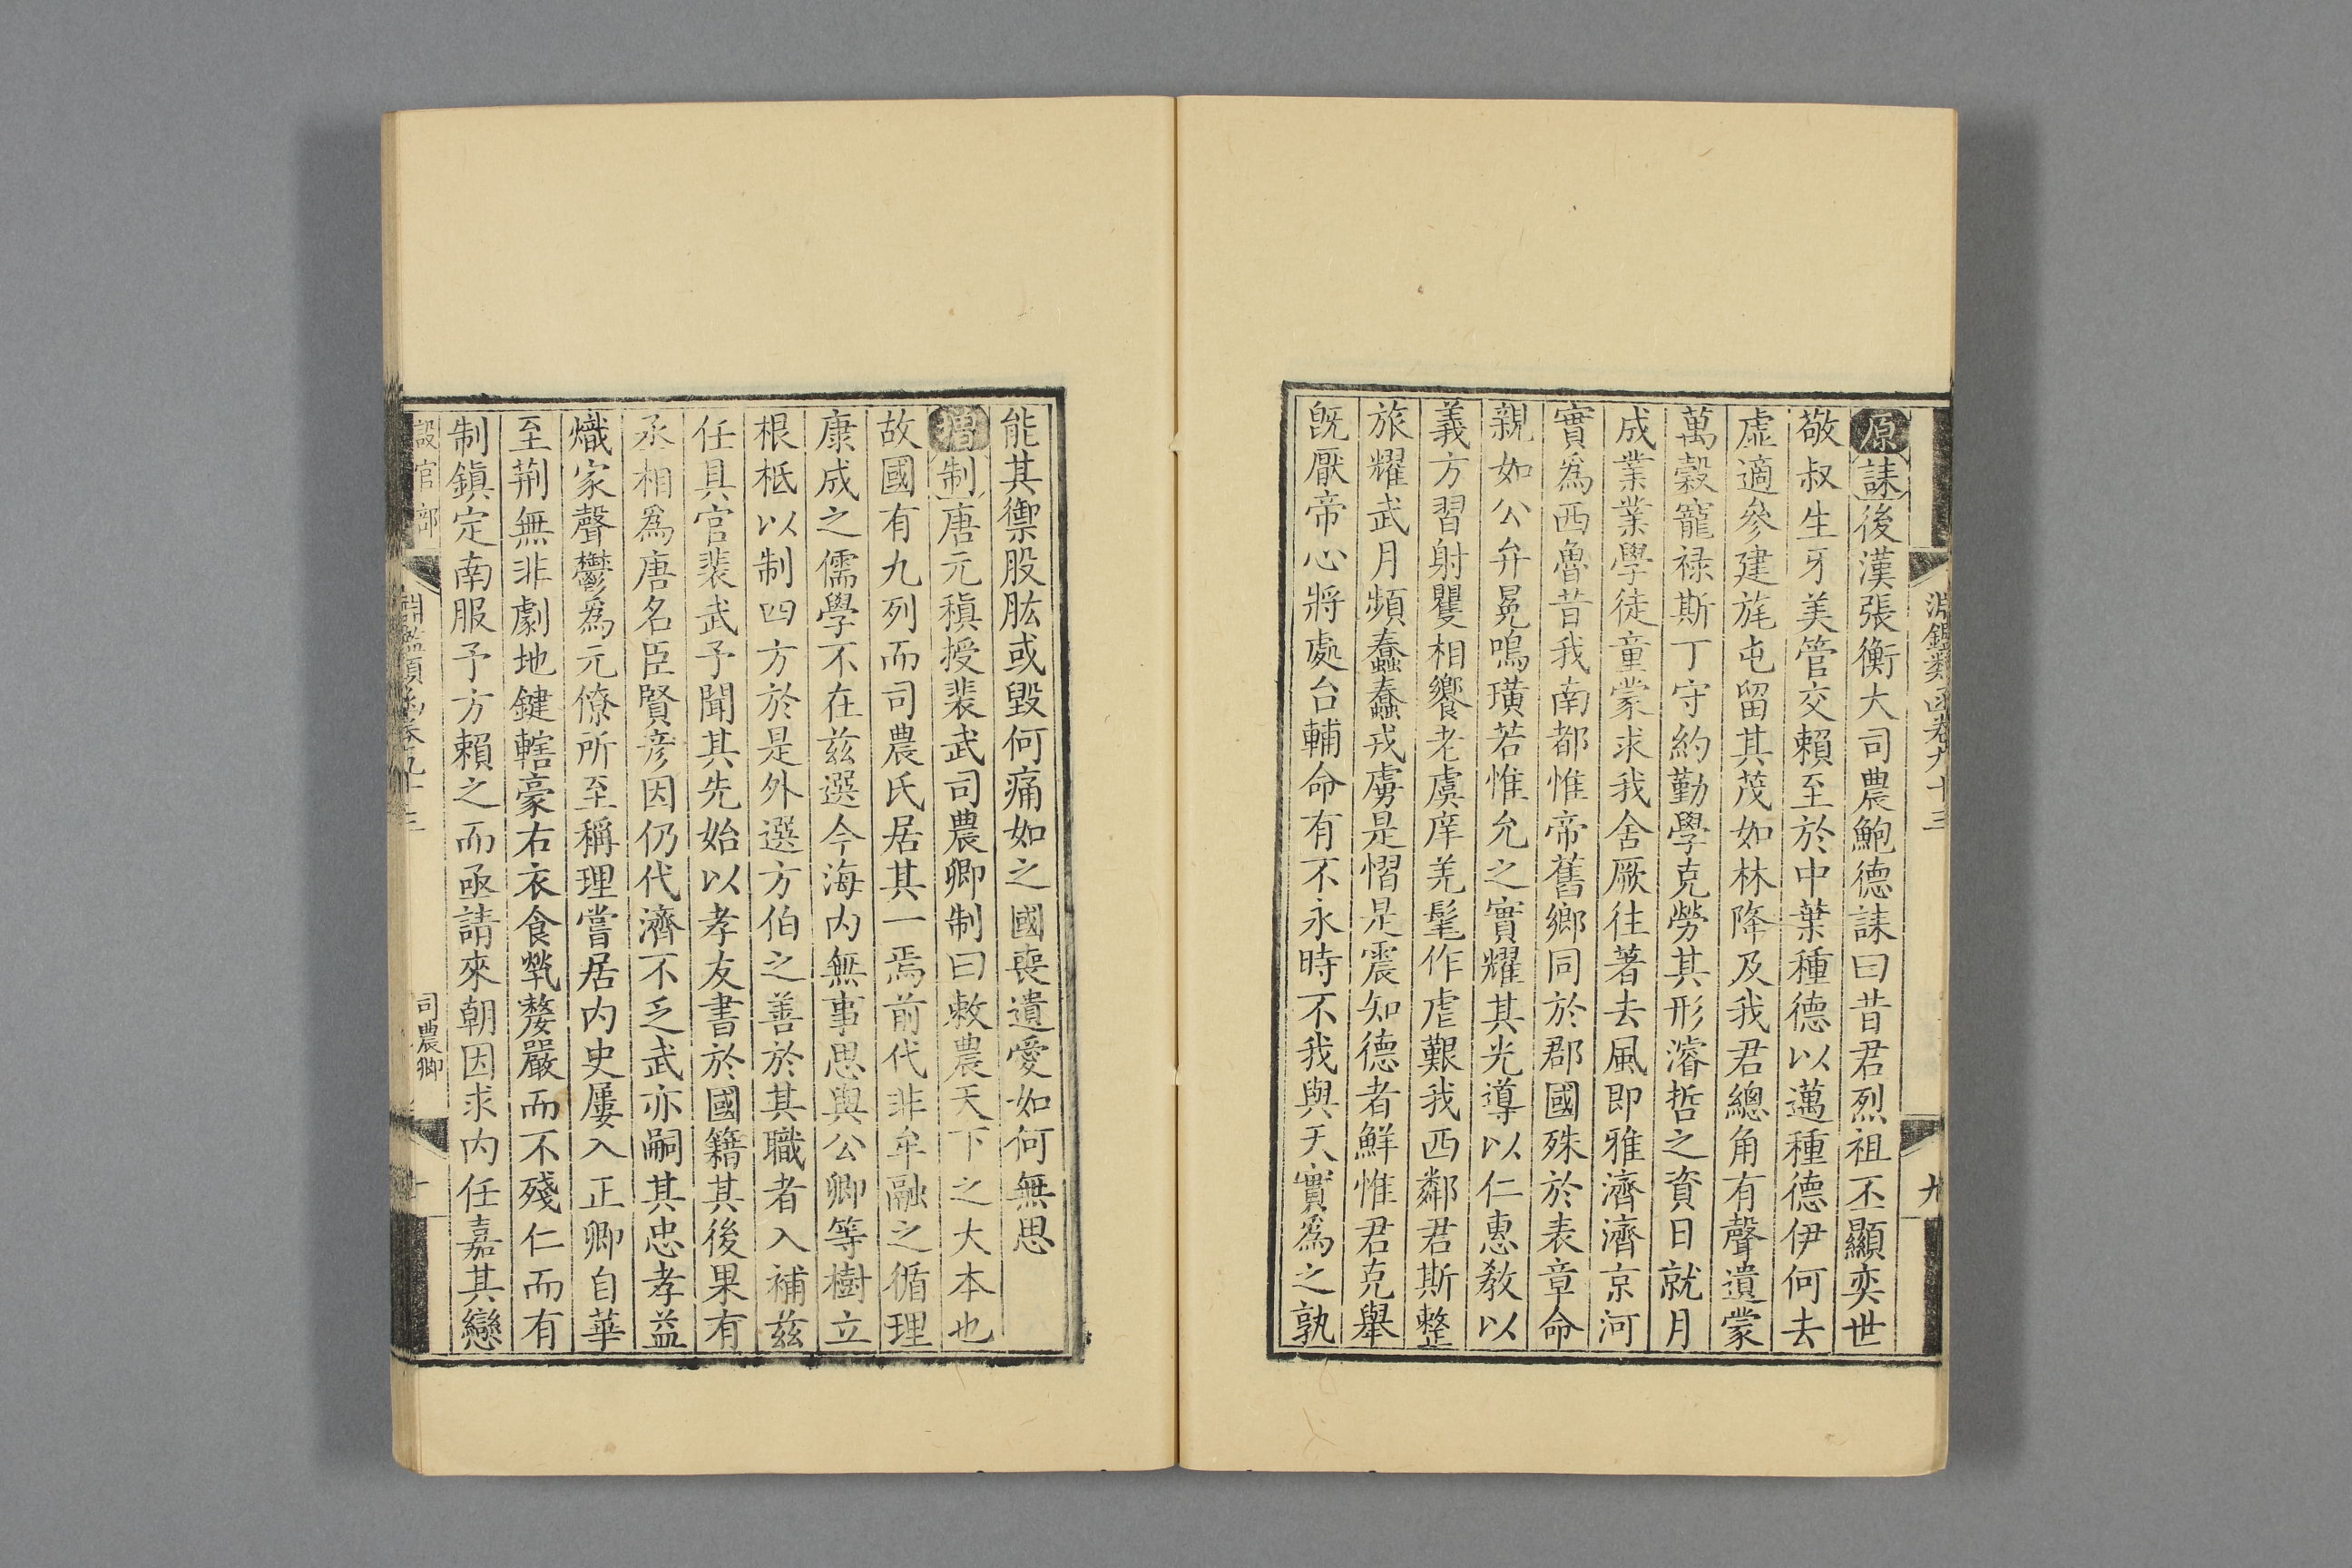 淵鑑類函卷九十三
九
原誄後漢張衡大司農鮑德誄曰昔君烈祖丕顯奕世
敬叔生牙美管交賴至於中葉種德以邁種德伊何去
虛適參建旄屯留其茂如林降及我君總角有聲遺蒙
萬穀寵祿斯丁守約勤學克勞其形濬哲之資日就月
成業業學徒童蒙求我舍厥往著去風即雅濟濟京河
實爲西魯昔我南都惟帝舊鄉同於郡國殊於表章命
親如公弁冕鳴璜若惟允之實耀其光導以仁惠敎以
義方習射矍相饗老虞庠羌髦作虐艱我西鄰君斯整
旅耀武月頻蠢蠢戎虜是慴是震知德者鮮惟君克舉
旣厭帝心將處台輔命有不永時不我與天實爲之孰
能其禦股肱或毀何痛如之國喪遺愛如何無思
增制唐元稹授裴武司農卿制曰敕農天下之大本也
故國有九列而司農氏居其一焉前代非牟融之循理
康成之儒學不在茲選今海內無事思與公卿等樹立
根柢以制四方於是外選方伯之善於其職者入補茲
任具官裴武予聞其先始以孝友書於國籍其後果有
丞相爲唐名臣賢彥因仍代濟不乏武亦嗣其忠孝益
熾家聲鬱爲元僚所至稱理嘗居內史屢入正卿自華
至荆無非劇地鍵轄豪右衣食煢嫠嚴而不殘仁而有
制鎭定南服予方賴之而亟請來朝因求內任嘉其戀
設官部
淵鑑類函卷九十三
司農卿